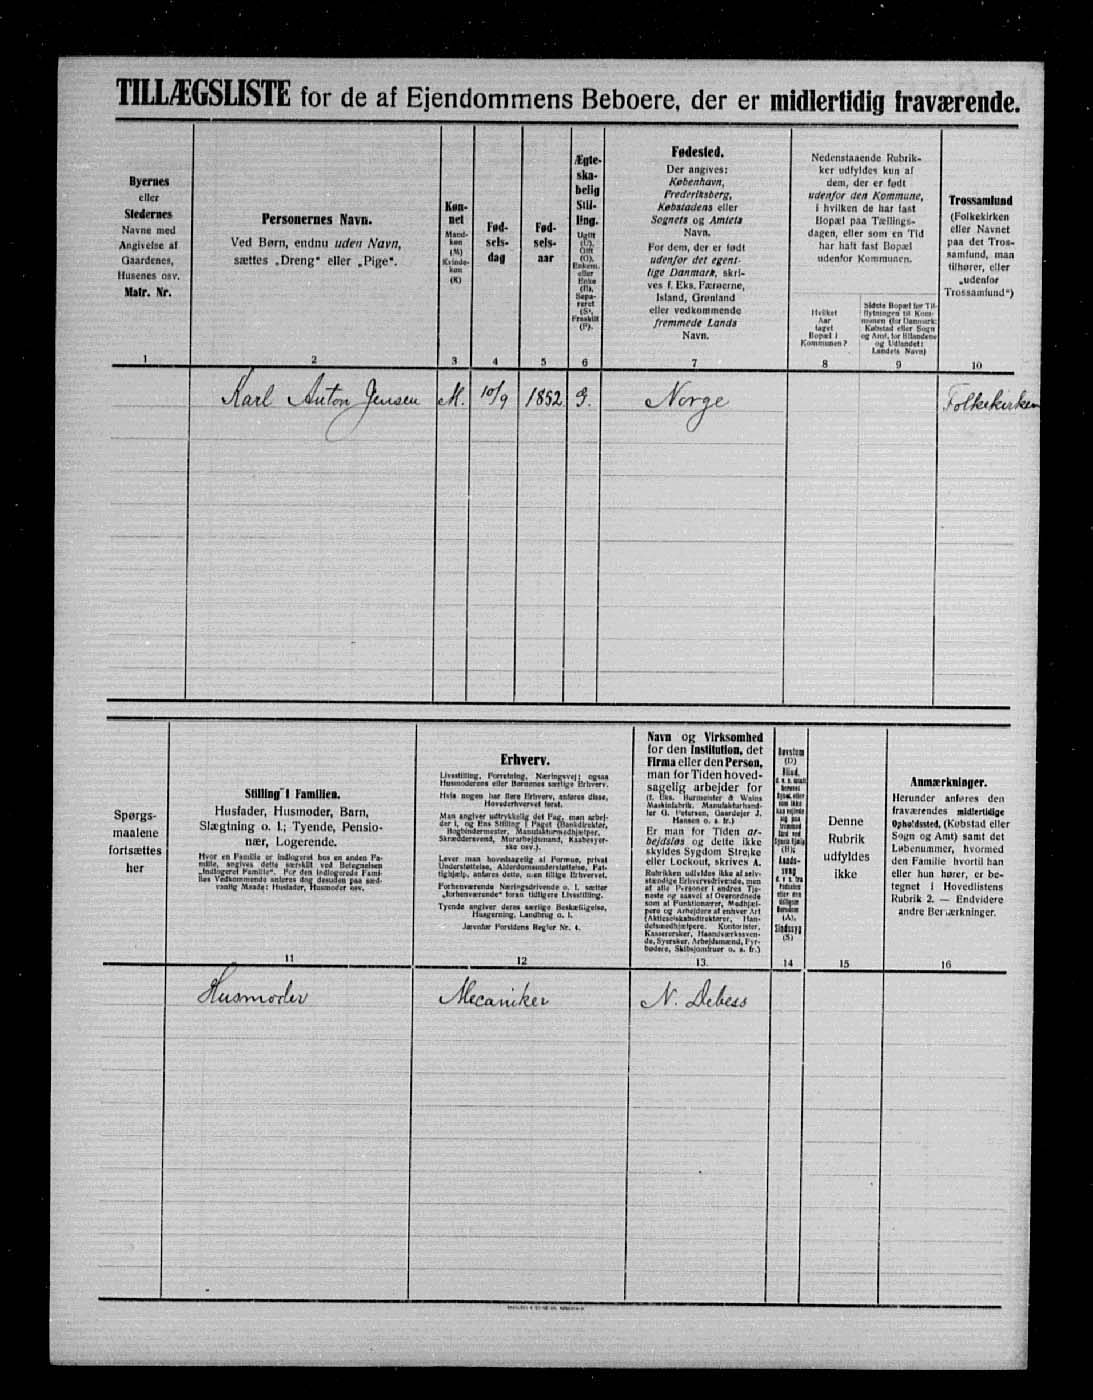 TILLÆGSLISTE for de af Ejendommens Beboere, der er midlertidig fraværende.
Byernes
eller
Stedernes
Navne med
Angivelse af
Gaardenes,
Husenes osv.
Matr. Nr.
1
Personernes Navn.
Ved Børn, endnu uden Navn,
sættes „Dreng“ eller „Pige“.
2
Køn-
net
Mand-
køn
(M)
Kvinde-
køn
(K)
3
Fød-
sels-
dag
4
Fød-
sels-
aar
5
Ægte-
ska-
belig
Stil-
ling.
Ugift
(U).
Gift
(G).
Enkem.
eller
Enke
(E).
Sepa-
reret
(S).
Fraskilt
(F).
6
Fødested.
Der angives:
København,
Frederiksberg,
Købstadens eller
Sognets og Amtets
Navn.
For dem, der er født
udenfor det egent-
lige Danmark, skri-
ves f. Eks. Færøerne,
Island, Grønland
eller vedkommende
fremmede Lands
Navn.
7
Nedenstaaende Rubrik-
ker udfyldes kun af
dem, der er født
udenfor den Kommune,
i hvilken de har fast
Bopæl paa Tællings-
dagen, eller som en Tid
har haft fast Bopæl
udenfor Kommunen.
Hvilket
Aar
taget
Bopæl i
Kommunen?
8
Sidste Bopæl før Til-
flytningen til Kom-
munen (for Danmark:
Købstad eller Sogn
og Amt, for Bilandene
og Udlandet:
Landets Navn)
9
Trossamfund
(Folkekirken
eller Navnet
paa det Tros-
samfund, man
tilhører, eller
„udenfor
Trossamfund“)
10
Karl Anton Jensen M. 10/9 1852 G. Norge Folkekirken
Spørgs-
maalene
fortsættes
her
Stilling i Familien.
Husfader, Husmoder, Barn,
Slægtning o. l.; Tyende, Pensio-
nær, Logerende.
Hvor en Familie er indlogeret hos en anden Fa-
milie, angives dette særskilt ved Betegnelsen
„Indlogeret Familie“. For den indlogerede Fami-
lies Vedkommende anføres dog desuden paa sæd-
vanlig Maade: Husfader, Husmoder osv.
11
Erhverv.
Livsstilling, Forretning, Næringsvej; ogsaa
Husmoderens eller Børnenes særlige Erhverv.
Hvis nogen har flere Erhverv, anføres disse,
Hovederhvervet først.
Man angiver udtrykkelig det Fag, man arbej-
der i, og Ens Stilling i Faget (Bankdirektør,
Bogbindermester, Manufakturmedhjælper,
Skræddersvend, Murarbejdsmand, Kaabesyer-
ske osv.).
Lever man hovedsagelig af Formue, privat
Understøttelse, Alderdomsunderstøttelse, Fat-
tighjælp, anføres dette, men tillige Erhvervet.
Forhenværende Næringsdrivende o. l. sætter
„forhenværende“ foran tidligere Livsstilling.
Tyende angiver deres særlige Beskæftigelse,
Husgerning, Landbrug o. l.
Jævnfør Forsidens Regler Nr. 4.
12
Navn og Virksomhed
for den Institution, det
Firma eller den Person,
man for Tiden hoved-
sagelig arbejder for
(f. Eks. Burmeister & Wains
Maskinfabrik. Manufakturhand-
ler G. Petersen, Gaardejer J.
Hansen o. s. fr.)
Er man for Tiden ar-
bejdsløs og dette ikke
skyldes Sygdom Strejke
eller Lockout, skrives A.
Rubrikken udfyldes ikke af selv-
stændige Erhvervsdrivende, men
af alle Personer i andres Tje-
neste og saavel af Overordnede
som af Funktionærer, Medhjæl-
pere og Arbejdere af enhver Art
(Aktieselskabsdirektører, Han-
delsmedhjælpere, Kontorister,
Kasserersker, Haandværkssven-
de, Syersker, Arbejdsmænd, Fyr-
bødere, Skibsjomfruer o. s. fr.)
13.
Døvstum
(D)
Blind,
(B);
Aands-
svag
(A),
Sindssyg
(S)
14
Denne
Rubrik
udfyldes
ikke
15
Anmærkninger.
Herunder anføres den
fraværendes midlertidige
Opholdssted, (Købstad eller
Sogn og Amt) samt det
Løbenummer, hvormed
den Familie hvortil han
eller hun hører, er be-
tegnet i Hovedlistens
Rubrik 2. — Endvidere
andre Bemærkninger.
16
Husmoder Mecaniker N. Debess